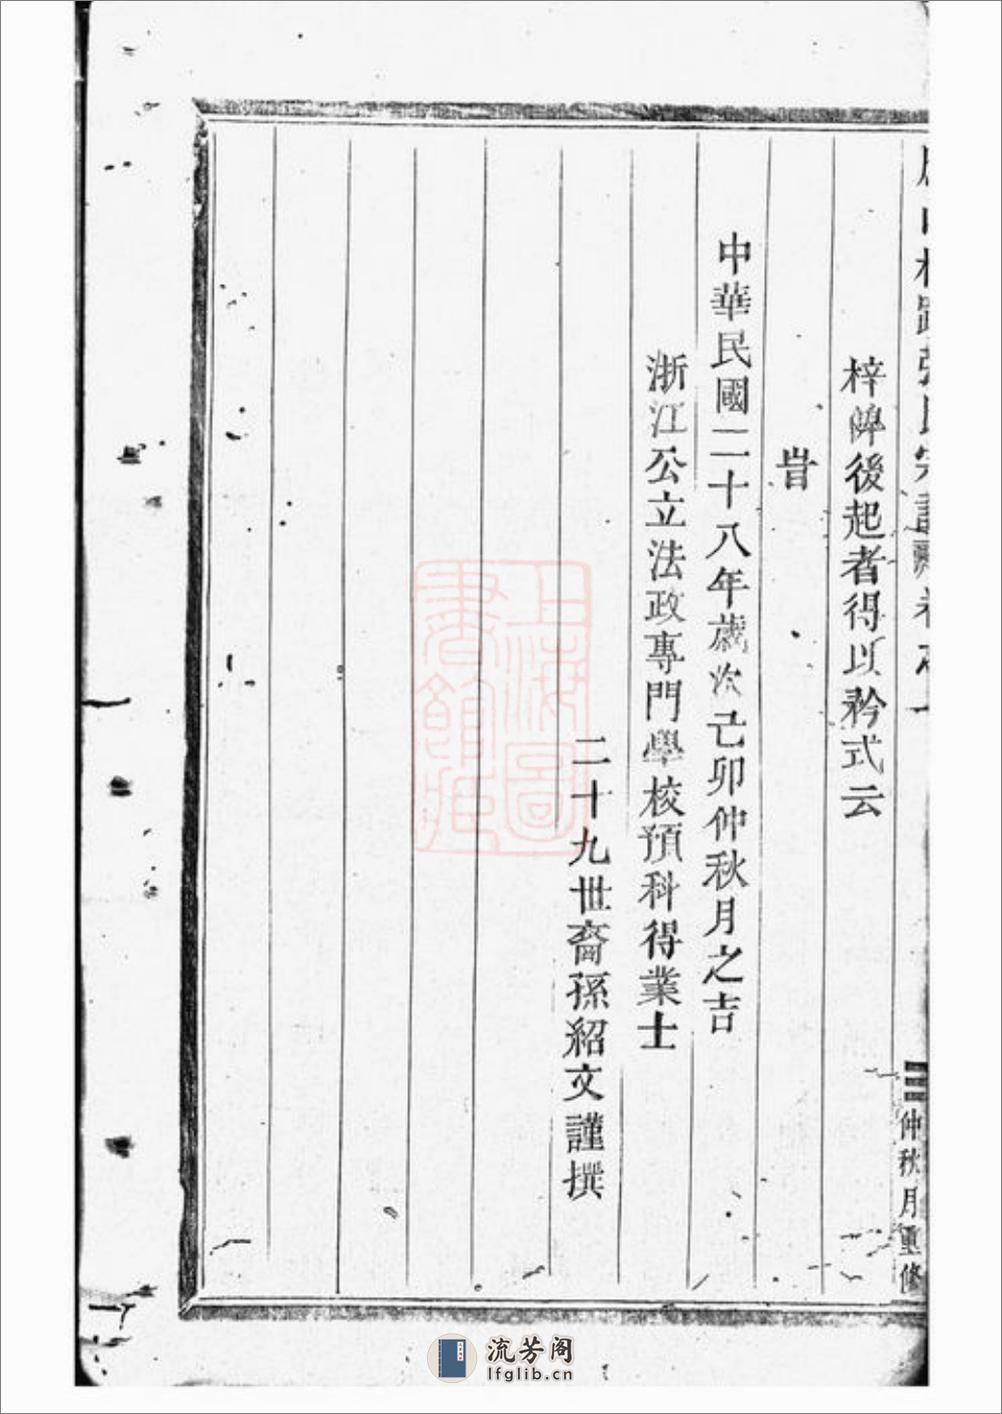 仲秋月重修
梓俾後起者得以矜式云
旹
中華民國二十八年歲次己卯仲秋月之吉
浙江公立法政專門學校預科得業士
二十九世裔孫紹文謹撰
上海圖
書館藏
流芳阁
lfglib.cn